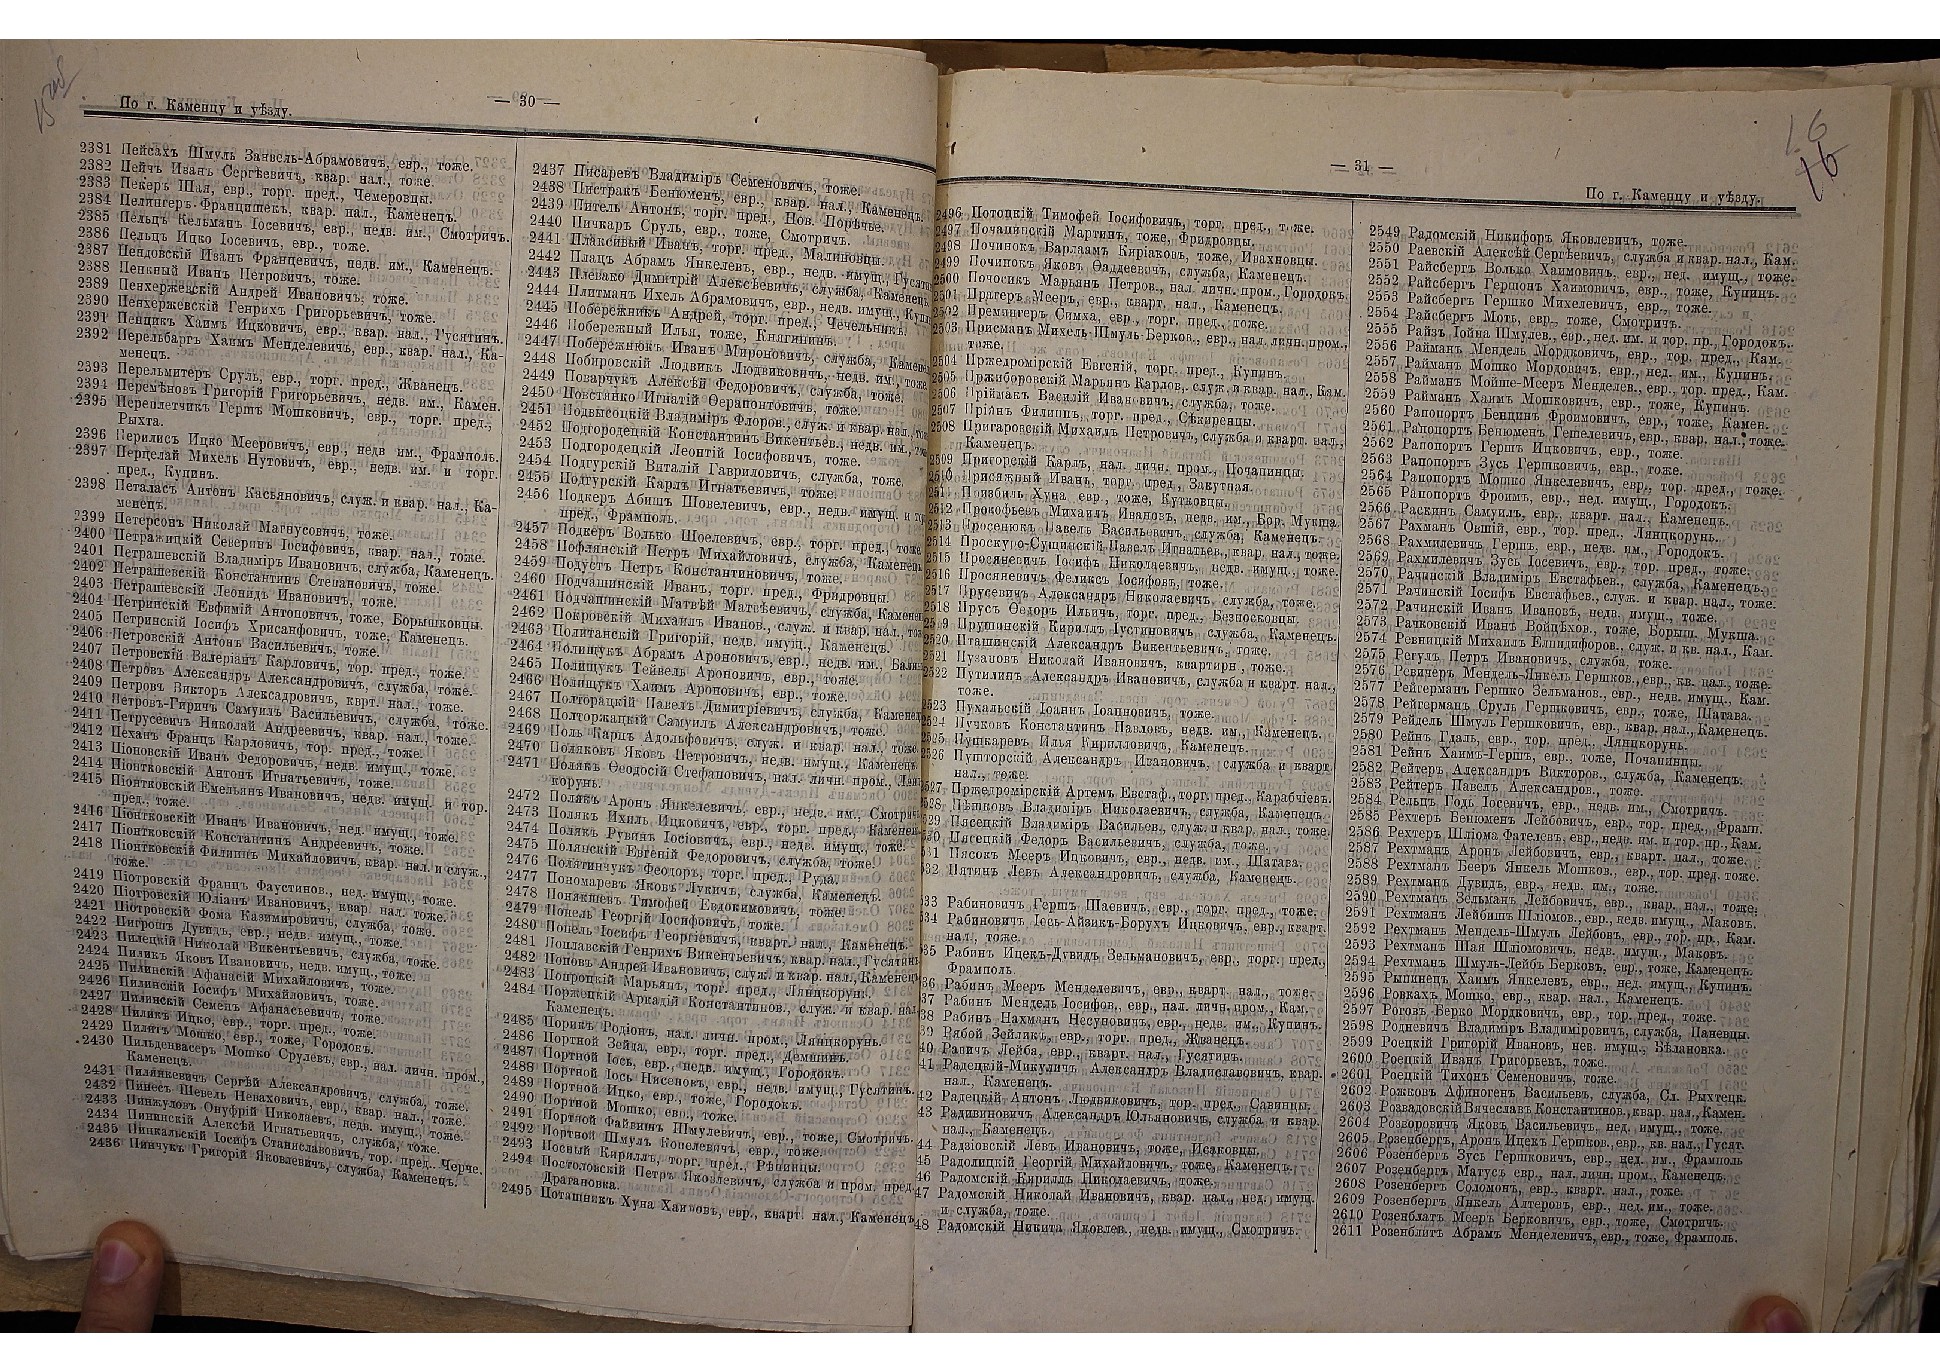 По г. Каменцу и уѣзду.
— 30 —
2381 Пейсахъ Шмуль Занвель-Абрамовичъ, евр., тоже.
2382 Пейчъ Иванъ Сергѣевичъ, квар. нал., тоже.
2383 Пекеръ Шая, евр., торг. пред., Чемеровцы.
2384 Пелингеръ Францишекъ, квар. нал., Каменецъ.
2385 Пельцъ Кельманъ Іосевичъ, евр., недв. им., Смотричъ.
2386 Пельцъ Ицко Іосевичъ, евр., тоже.
2387 Пендовскій Иванъ Францевичъ, недв. им., Каменецъ.
2388 Пенкный Иванъ Петровичъ, тоже.
2389 Пенхержевскій Андрей Ивановичъ, тоже.
2390 Пенхержевскій Генрихъ Григорьевичъ, тоже.
2391 Пенцикъ Хаимъ Ицковичъ, евр., квар. нал., Гусятинъ.
2392 Перельбаргъ Хаимъ Менделевичъ, евр., квар. нал., Ка-
менецъ.
2393 Перельмитеръ Сруль, евр., торг. пред., Жванецъ.
2394 Перемѣновъ Григорій Григорьевичъ, недв. им., Камен.
2395 Переплетчикъ Гершъ Мошковичъ, евр., торг. пред.,
Рыхта.
2396 Перилисъ Ицко Мееровичъ, евр., недв им., Фрамполь.
2397 Перцелай Михель Нутовичъ, евр., недв. им. и торг.
пред., Купинъ.
2398 Петаласъ Антонъ Касьяновичъ, служ. и квар. нал., Ка-
менецъ.
2399 Петерсонъ Николай Магнусовичъ, тоже.
2400 Петражицкій Северинъ Іосифовичъ, квар. нал., тоже.
2401 Петрашевскій Владиміръ Ивановичъ, служба, Каменецъ.
2402 Петрашевскій Константинъ Степановичъ, тоже.
2403 Петрашевскій Леонидъ Ивановичъ, тоже.
2404 Петринскій Евфимій Антоновичъ, тоже, Борышковцы.
2405 Петринскій Іосифъ Хрисанфовичъ, тоже, Каменецъ.
2406 Петровскій Антонъ Васильевичъ, тоже.
2407 Петровскій Валеріанъ Карловичъ, тор. пред., тоже.
2408 Петровъ Александръ Александровичъ, служба, тоже.
2409 Петровъ Викторъ Алексадровичъ, кврт. нал., тоже.
2410 Петровъ-Гиричъ Самуилъ Васильевичъ, служба, тоже.
2411 Петрусевичъ Николай Андреевичъ, квар. нал., тоже.
2412 Пеханъ Францъ Карловичъ, тор. пред., тоже.
2413 Піоновскій Иванъ Федоровичъ, недв. имущ., тоже.
2414 Піонтковскій Антонъ Игнатьевичъ, тоже.
2415 Піонтковскій Емельянъ Ивановичъ, недв. имущ. и тор.
пред., тоже.
2416 Піонтковскій Иванъ Ивановичъ, нед. имущ., тоже.
2417 Піонтковскій Константинъ Андреевичъ, тоже.
2418 Піонтковскій Филиппъ Михайловичъ, квар. нал. и служ.,
тоже.
2419 Піотровскій Францъ Фаустинов., нед. имущ., тоже.
2420 Піотровскій Юліанъ Ивановичъ, квар. нал. тоже.
2421 Піотровскій Фома Казимировичъ, служба, тоже.
2422 Пигрошъ Дувидъ, евр., недв. имущ., тоже.
2423 Пилецкій Николай Викентьевичъ, служба, тоже.
2424 Пиликъ Яковъ Ивановичъ, недв. имущ., тоже.
2425 Пилинскій Афанасій Михайловичъ, тоже.
2426 Пилинскій Іосифъ Михайловичъ, тоже.
2427 Пилинскій Семенъ Афанасьевичъ, тоже.
2428 Пиликъ Ицко, евр., торг. пред., тоже.
2429 Пиликъ Мошко, евр., тоже, Городокъ.
2430 Пильденвасеръ Мошко Срулевъ, евр., нал. личн. пром.,
Каменецъ.
2431 Пилянкевичъ Сергѣй Александровичъ, служба, тоже.
2432 Пинесъ Шевель Неваховичъ, евр., квар. нал., тоже.
2433 Пинжуловъ Онуфрій Николаевъ, недв. имущ., тоже.
2434 Пининскій Алексѣй Игнатьевичъ, служба, тоже.
2435 Пинкальскій Іосифъ Станиславовичъ, тор. пред. Черче.
2436 Пинчукъ Григорій Яковлевичъ, служба, Каменецъ.
2437 Писаревъ Владиміръ Семеновичъ, тоже.
2438 Пистракъ Бенюменъ, евр., квар. нал., Каменецъ.
2439 Питель Антонъ, торг. пред., Нов. Порѣчье.
2440 Пичкаръ Сруль, евр., тоже, Смотричъ.
2441 Плаксивый Иванъ, торг. пред., Малиновцы.
2442 Плацъ Абрамъ Янкелевъ, евр., недв. имущ., Гусятин
2443 Плевако Димитрій Алексѣевичъ, служба, Каменецъ
2444 Плитманъ Ихель Абрамовичъ, евр., недв. имущ., Купи
2445 Побережникъ Андрей, торг. пред., Чечельникъ.
2446 Побережный Илья, тоже, Княгининъ.
2447 Побережнюкъ Иванъ Мироновичъ, служба, Каменец
2448 Побировскій Людвикъ Людвиковичъ, недв. им., тоже
2449 Поварчукъ Алексѣй Федоровичъ, служба, тоже.
2450 Повстянко Игнатій Ѳерапонтовичъ, тоже.
2451 Подвысоцкій Владиміръ Флоров., служ. и квар. нал., тож
2452 Подгородецкій Константинъ Викентьев., недв. им., тож
2453 Подгородецкій Леонтій Іосифовичъ, тоже.
2454 Подгурскій Виталій Гавриловичъ, служба, тоже.
2455 Подгурскій Карлъ Игнатьевичъ, тоже.
2456 Подкеръ Абишъ Шовелевичъ, евр., недв. имущ. и тор
пред., Фрамполь.
2457 Подкеръ Волько Шоелевичъ, евр., торг. пред., тоже
2458 Пофлянскій Петръ Михайловичъ, служба, Каменецъ
2459 Подустъ Петръ Константиновичъ, тоже.
2460 Подчашинскій Иванъ, торг. пред., Фридровцы
2461 Подчашинскій Матвѣй Матвѣевичъ, служба, Каменец
2462 Покровскій Михаилъ Иванов., служ. и квар. нал., тож
2463 Политанскій Григорій, недв. имущ., Каменецъ.
2464 Полищукъ Абрамъ Ароновичъ, евр., недв. им., Балин
2465 Полищукъ Тейвель Ароновичъ, евр., тоже.
2466 Полищукъ Хаимъ Ароновичъ, евр., тоже.
2467 Полторацкій Павелъ Димитріевичъ, служба, Каменец
2468 Полторжацкій Самуилъ Александровичъ, тоже.
2469 Поль Карпъ Адольфовичъ, служ. и квар. нал., тоже
2470 Поляковъ Яковъ Петровичъ, недв. имущ., Каменецъ
2471 Полякъ Ѳеодосій Стефановичъ, нал. личн. пром., Лянц
корунь.
2472 Полякъ Аронъ Янкелевичъ, евр., недв. им., Смотрич
2473 Полякъ Ихиль Ицковичъ, евр., торг. пред., Каменец
2474 Полякъ Рувинъ Іосіовичъ, евр., недв. имущ., тоже.
2475 Полянскій Евгеній Федоровичъ, служба, тоже.
2476 Полятинчукъ Феодоръ, торг. пред., Руда.
2477 Пономаревъ Яковъ Лукичъ, служба, Каменецъ.
2478 Понякшевъ Тимофей Евдокимовичъ, тоже.
2479 Попель Георгій Іосифовичъ, тоже.
2480 Попель Іосифъ Георгіевичъ, кварт. нал., Каменецъ.
2481 Поплавскій Генрихъ Викентьевичъ, квар. нал., Гусятин
2482 Поповъ Андрей Ивановичъ, служ. и квар. нал., Каменецъ
2483 Попроцкій Марьянъ, торг. пред., Лянцкорунь.
2484 Поржецкій Аркадій Константинов., служ. и квар. нал.
Каменецъ.
2485 Порикъ Родіонъ, нал. личн. пром., Лянцкорунь.
2486 Портной Зейда, евр., торг. пред., Демшинъ.
2487 Портной Іось, евр., недв. имущ., Городокъ.
2488 Портной Іось Нисеновъ, евр., недв. имущ., Гусятинъ.
2489 Портной Ицко, евр., тоже, Городокъ.
2490 Портной Мошко, евр., тоже.
2491 Портной Файвишъ Шмулевичъ, евр., тоже, Смотричъ.
2492 Портной Шмулъ Копелевичъ, евр., тоже.
2493 Посный Кириллъ, торг. пред., Рѣпинцы.
2494 Постоловскій Петръ Яковлевичъ, служба и пром. пред.
Драгановка.
2495 Поташникъ Хуна Хаимовъ, евр., кварт. нал., Каменецъ
— 31 —
По г. Каменцу и уѣзду.
2496 Потоцкій Тимофей Іосифовичъ, торг. пред., тоже.
2497 Почапинскій Мартинъ, тоже, Фридровцы.
2498 Починокъ Варлаамъ Киріаковъ, тоже, Ивахновцы.
2499 Починокъ Яковъ Ѳаддеевичъ, служба, Каменецъ.
2500 Почосикъ Марьянъ Петров., нал. личн. пром., Городокъ.
2501 Прагеръ Мееръ, евр., кварт. нал., Каменецъ.
2502 Премингеръ Симха, евр., торг. пред., тоже.
2503 Присманъ Михель-Шмуль Берков., евр., нал. личн. пром.,
тоже.
2504 Пржедромірскій Евгеній, торг. пред., Купинъ.
2505 Пржиборовскій Марьянъ Карлов., служ. и квар. нал., Кам.
2506 Пріймакъ Василій Ивановичъ, служба, тоже.
2507 Прійнъ Филиппъ, торг. пред., Сѣкиренцы.
2508 Пригаровскій Михаилъ Петровичъ, служба и кварт. нал.,
Каменецъ.
2509 Пригорскій Карлъ, нал. личн. пром., Почапинцы.
2510 Присяжный Иванъ, торг. пред., Закутная.
2511 Призбиль Хуна, евр., тоже, Кутковцы.
2512 Прокофьевъ Михаилъ Ивановъ, недв. им., Бор. Мукша.
2513 Просенюкъ Павелъ Васильевичъ, служба, Каменецъ.
2514 Проскуро-Сущинскій Павелъ Игнатьев., квар. нал., тоже.
2515 Просяневичъ Іосифъ Николаевичъ, недв. имущ., тоже.
2516 Просяневичъ Феликсъ Іосифовъ, тоже.
2517 Прусевичъ Александръ Николаевичъ, служба, тоже.
2518 Прусъ Ѳедоръ Ильичъ, торг. пред., Безносковцы.
2519 Прушинскій Кириллъ Іустиновичъ, служба, Каменецъ.
2520 Пташинскій Александръ Викентьевичъ, тоже.
2521 Пузановъ Николай Ивановичъ, квартира, тоже.
2522 Путилинъ Александръ Ивановичъ, служба и кварт. нал.,
тоже.
2523 Пухальскій Іоаннъ Іоанновичъ, тоже.
2524 Пучковъ Константинъ Павловъ, недв. им., Каменецъ.
2525 Пушкаревъ Илья Кирилловичъ, Каменецъ.
2526 Пушторскій Александръ Ивановичъ, служба и кварт.
нал., тоже.
2527 Пржедромірскій Артемъ Евстаф., торг. пред., Карабчіевъ.
2528 Пѣшковъ Владиміръ Николаевичъ, служба, Каменецъ.
2529 Пясецкій Владиміръ Васильев., служ. и квар. нал., тоже.
530 Пясецкій Федоръ Васильевичъ, служба, тоже.
531 Пясокъ Мееръ Ицковичъ, евр., недв. им., Шатава.
532 Пятинъ Левъ Александровичъ, служба, Каменецъ.
533 Рабиновичъ Гершъ Шаевичъ, евр., торг. пред., тоже.
534 Рабиновичъ Іесь-Айзикъ-Борухъ Ицковичъ, евр., кварт.
нал., тоже.
535 Рабинъ Ицекъ-Дувидъ Зельмановичъ, евр., торг. пред.,
Фрамполь.
36 Рабинъ Мееръ Менделевичъ, евр., кварт. нал., тоже.
37 Рабинъ Мендель Іосифов., евр., нал. личн. пром., Кам.
38 Рабинъ Нахманъ Несуновичъ, евр., недв. им., Купинъ.
39 Рябой Зейликъ, евр., торг. пред., Жванецъ.
40 Рапичъ Лейба, евр., кварт. нал., Гусятинъ.
41 Радецкій-Микуличъ Александръ Владиславовичъ, квар.
нал., Каменецъ.
42 Радецкій Антонъ Людвиковичъ, тор. пред., Савинцы.
43 Радивиновичъ Александръ Юльяновичъ, служба и квар.
нал., Каменецъ.
44 Радзіовскій Левъ Ивановичъ, тоже, Исаковцы.
45 Радолицкій Георгій Михайловичъ, тоже, Каменецъ.
46 Радомскій Кириллъ Николаевичъ, тоже.
47 Радомскій Николай Ивановичъ, квар. нал., нед. имущ.
и служба, тоже.
48 Радомскій Никита Яковлев., недв. имущ., Смотричъ.
2549 Радомскій Никифоръ Яковлевичъ, тоже.
2550 Раевскій Алексѣй Сергѣевичъ, служба и квар. нал., Кам.
2551 Райсбергъ Волько Хаимовичъ, евр., нед. имущ., тоже.
2552 Райсбергъ Гершонъ Хаимовичъ, евр., тоже, Купинъ.
2553 Райсбергъ Гершко Михелевичъ, евр., тоже.
2554 Райсбергъ Моть, евр., тоже, Смотричъ.
2555 Райзъ Іойна Шмулев., евр., нед. им. и тор. пр., Городокъ.
2556 Райманъ Мендель Мордковичъ, евр., тор. пред., Кам.
2557 Райманъ Мошко Мордовичъ, евр., нед. им., Купинъ.
2558 Райманъ Мойше-Мееръ Менделев., евр., тор. пред., Кам.
2559 Райманъ Хаимъ Мошковичъ, евр., тоже, Купинъ.
2560 Рапопортъ Бендинъ Фроимовичъ, евр., тоже, Камен.
2561 Рапопортъ Бенюменъ Гешелевичъ, евр., квар. нал., тоже.
2562 Рапопортъ Гершъ Ицковичъ, евр., тоже.
2563 Рапопортъ Зусь Гершковичъ, евр., тоже.
2564 Рапопортъ Мошко Янкелевичъ, евр., тор. пред., тоже.
2565 Рапопортъ Фроимъ, евр., нед. имущ., Городокъ.
2566 Раскинъ Самуилъ, евр., кварт. нал., Каменецъ.
2567 Рахманъ Овшій, евр., тор. пред., Лянцкорунь.
2568 Рахмилевичъ Гершъ, евр., недв. им., Городокъ.
2569 Рахмилевичъ Зусь Іосевичъ, евр., тор. пред., тоже.
2570 Рачинскій Владиміръ Евстафьев., служба, Каменецъ.
2571 Рачинскій Іосифъ Евстафьев., служ. и квар. нал., тоже.
2572 Рачинскій Иванъ Ивановъ, недв. имущ., тоже.
2573 Рачковскій Иванъ Войцѣхов., тоже, Борыш. Мукша.
2574 Ревницкій Михаилъ Елпидифоров., служ. и кв. нал., Кам.
2575 Регулъ Петръ Ивановичъ, служба, тоже.
2576 Ревичеръ Мендель-Янкель Гершков., евр., кв. нал., тоже.
2577 Рейгерманъ Гершко Зельманов., евр., недв. имущ., Кам.
2578 Рейгерманъ Сруль Гершковичъ, евр., тоже, Шатава.
2579 Рейдель Шмуль Гершковичъ, евр., квар. нал., Каменецъ.
2580 Рейнъ Гдаль, евр., тор. пред., Лянцкорунь.
2581 Рейнъ Хаимъ-Гершъ, евр., тоже, Почапинцы.
2582 Рейтеръ Александръ Викторов., служба, Каменецъ.
2583 Рейтеръ Павелъ Александров., тоже.
2584 Рельцъ Годь Іосевичъ, евр., недв. им., Смотричъ.
2585 Рехтеръ Бенюменъ Лейбовичъ, евр., тор. пред., Фрамп.
2586 Рехтеръ Шліома Фателевъ, евр., нед. им. и тор. пр., Кам.
2587 Рехтманъ Аронъ Лейбовичъ, евр., кварт. нал., тоже.
2588 Рехтманъ Бееръ Янкель Мошков., евр., тор. пред. тоже.
2589 Рехтманъ Дувидъ, евр., недв. им., тоже.
2590 Рехтманъ Зельманъ Лейбовичъ, евр., квар. нал., тоже.
2591 Рехтманъ Лейбишъ Шліомов., евр., недв. имущ., Маков.
2592 Рехтманъ Мендель-Шмуль Лейбов., евр., тор. пр., Кам.
2593 Рехтманъ Шая Шліомовичъ, недв. имущ., Маков.
2594 Рехтманъ Шмуль-Лейбъ Берковъ, евр., тоже, Каменецъ.
2595 Рыпинецъ Хаимъ Янкелевъ, евр., нед. имущ., Купинъ.
2596 Ровкахъ Мошко, евр., квар. нал., Каменецъ.
2597 Роговъ Берко Мордковичъ, евр., тор. пред., тоже.
2598 Родневичъ Владиміръ Владиміровичъ, служба, Паневцы.
2599 Роецкій Григорій Ивановъ, нев. имущ., Бѣлановка.
2600 Роецкій Иванъ Григорьевъ, тоже.
2601 Роецкій Тихонъ Семеновичъ, тоже.
2602 Рожковъ Афиногенъ Васильевъ, служба, Сл. Рыхтецк.
2603 Розвадовскій Вячеславъ Константинов., квар. нал., Камен.
2604 Розворовичъ Яковъ Васильевичъ, нед. имущ., тоже.
2605 Розенбергъ, Аронъ Ицекъ Гершков., евр., кв. нал., Гусят.
2606 Розенбергъ Зусь Гершковичъ, евр., нед. им., Фрамполь
2607 Розенбергъ Матусъ, евр., нал. личн. пром., Каменецъ.
2608 Розенбергъ Соломонъ, евр., кварт. нал., тоже.
2609 Розенбергъ Янкель Алтеровъ, евр., нед. им., тоже.
2610 Розенблатъ Мееръ Берковичъ, евр., тоже, Смотричъ.
2611 Розенблитъ Абрамъ Менделевичъ, евр., тоже, Фрамполь.